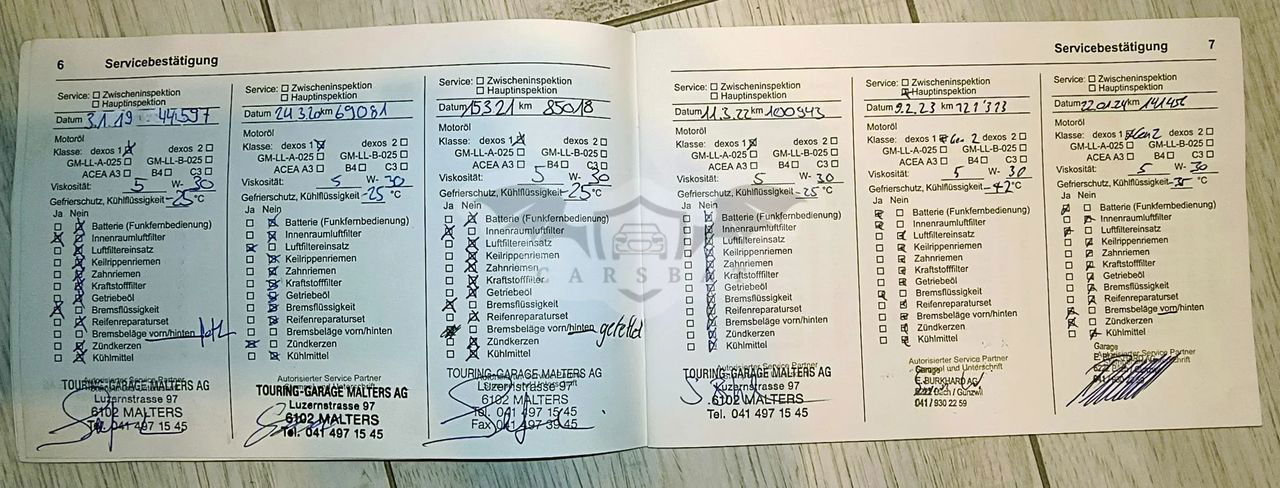 6 Servicebestätigung
Service: Zwischeninspektion
Hauptinspektion
Datum 3.1.19 44.597
Motoröl
Klasse: dexos 1 dexos 2
GM-LL-A-025 GM-LL-B-025
ACEA A3 B4 C3
Viskosität: 5 W- 30
Gefrierschutz, Kühlflüssigkeit -25 °C
Ja Nein
Batterie (Funkfernbedienung)
Innenraumluftfilter
Luftfiltereinsatz
Keilrippenriemen
Zahnriemen
Kraftstofffilter
Getriebeöl
Bremsflüssigkeit
Reifenreparaturset
Bremsbeläge vorn/hinten
Zündkerzen
Kühlmittel
TOURING-GARAGE MALTERS AG
Luzernstrasse 97
6102 MALTERS
Tel. 041 497 15 45
Service: Zwischeninspektion
Hauptinspektion
Datum 24.3.20 km 69081
Motoröl
Klasse: dexos 1 dexos 2
GM-LL-A-025 GM-LL-B-025
ACEA A3 B4 C3
Viskosität: 5 W- 30
Gefrierschutz, Kühlflüssigkeit -25 °C
Ja Nein
Batterie (Funkfernbedienung)
Innenraumluftfilter
Luftfiltereinsatz
Keilrippenriemen
Zahnriemen
Kraftstofffilter
Getriebeöl
Bremsflüssigkeit
Reifenreparaturset
Bremsbeläge vorn/hinten
Zündkerzen
Kühlmittel
Autorisierter Service Partner
TOURING-GARAGE MALTERS AG
Luzernstrasse 97
6102 MALTERS
Tel. 041 497 15 45
Service: Zwischeninspektion
Hauptinspektion
Datum 15.3.21 km 85018
Motoröl
Klasse: dexos 1 dexos 2
GM-LL-A-025 GM-LL-B-025
ACEA A3 B4 C3
Viskosität: 5 W- 30
Gefrierschutz, Kühlflüssigkeit -25 °C
Ja Nein
Batterie (Funkfernbedienung)
Innenraumluftfilter
Luftfiltereinsatz
Keilrippenriemen
Zahnriemen
Kraftstofffilter
Getriebeöl
Bremsflüssigkeit
Reifenreparaturset
Bremsbeläge vorn/hinten
Zündkerzen
Kühlmittel
TOURING-GARAGE MALTERS AG
Luzernstrasse 97
6102 MALTERS
Tel. 041 497 15 45
Fax 041 497 39 45
CARSBAT
Servicebestätigung 7
Service: Zwischeninspektion
Hauptinspektion
Datum 11.3.22 km 100943
Motoröl
Klasse: dexos 1 dexos 2
GM-LL-A-025 GM-LL-B-025
ACEA A3 B4 C3
Viskosität: 5 W- 30
Gefrierschutz, Kühlflüssigkeit -25 °C
Ja Nein
Batterie (Funkfernbedienung)
Innenraumluftfilter
Luftfiltereinsatz
Keilrippenriemen
Zahnriemen
Kraftstofffilter
Getriebeöl
Bremsflüssigkeit
Reifenreparaturset
Bremsbeläge vorn/hinten
Zündkerzen
Kühlmittel
Autorisierter Service Partner
TOURING-GARAGE MALTERS AG
Luzernstrasse 97
6102 MALTERS
Tel. 041 497 15 45
Service: Zwischeninspektion
Hauptinspektion
Datum 9.2.23 km 121'313
Motoröl
Klasse: dexos 1 Gen 2
GM-LL-A-025 GM-LL-B-025
ACEA A3 B4 C3
Viskosität: 5 W- 30
Gefrierschutz, Kühlflüssigkeit -42 °C
Ja Nein
Batterie (Funkfernbedienung)
Innenraumluftfilter
Luftfiltereinsatz
Keilrippenriemen
Zahnriemen
Kraftstofffilter
Getriebeöl
Bremsflüssigkeit
Reifenreparaturset
Bremsbeläge vorn/hinten
Zündkerzen
Kühlmittel
Autorisierter Service Partner
Garage
E. BURKHARD AG
041 / 930 22 59
Service: Zwischeninspektion
Hauptinspektion
Datum 22.01.24 km 141456
Motoröl
Klasse: dexos 1 Gen 2 dexos 2
GM-LL-A-025 GM-LL-B-025
ACEA A3 B4 C3
Viskosität: 5 W- 30
Gefrierschutz, Kühlflüssigkeit °C
Ja Nein
Batterie (Funkfernbedienung)
Innenraumluftfilter
Luftfiltereinsatz
Keilrippenriemen
Zahnriemen
Kraftstofffilter
Getriebeöl
Bremsflüssigkeit
Reifenreparaturset
Bremsbeläge vorn/hinten
Zündkerzen
Kühlmittel
Garage
Autorisierter Service Partner